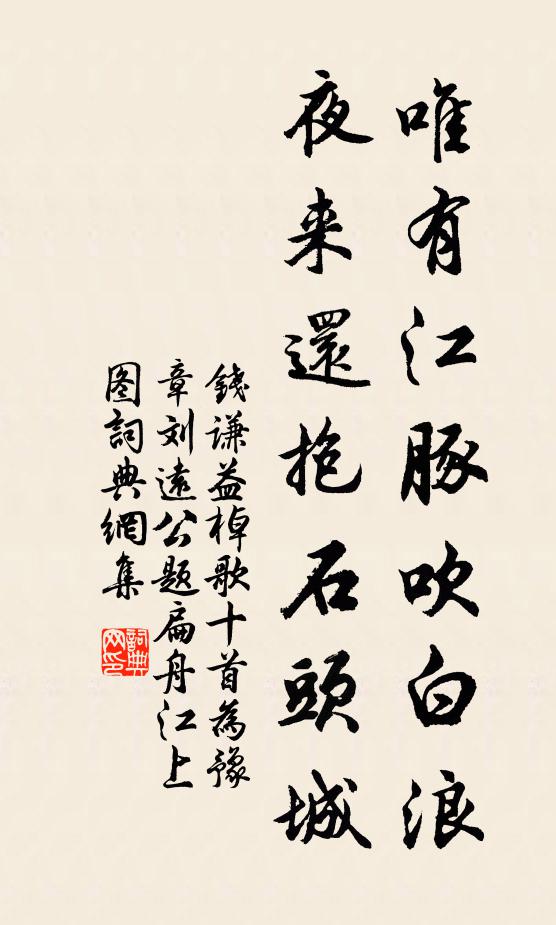 唯有江豚吹白浪
夜来還抱石頭城
錢謙益棹歌十首為豫
章刘遠公題扁舟江上
图詞典網集
詞典
网印